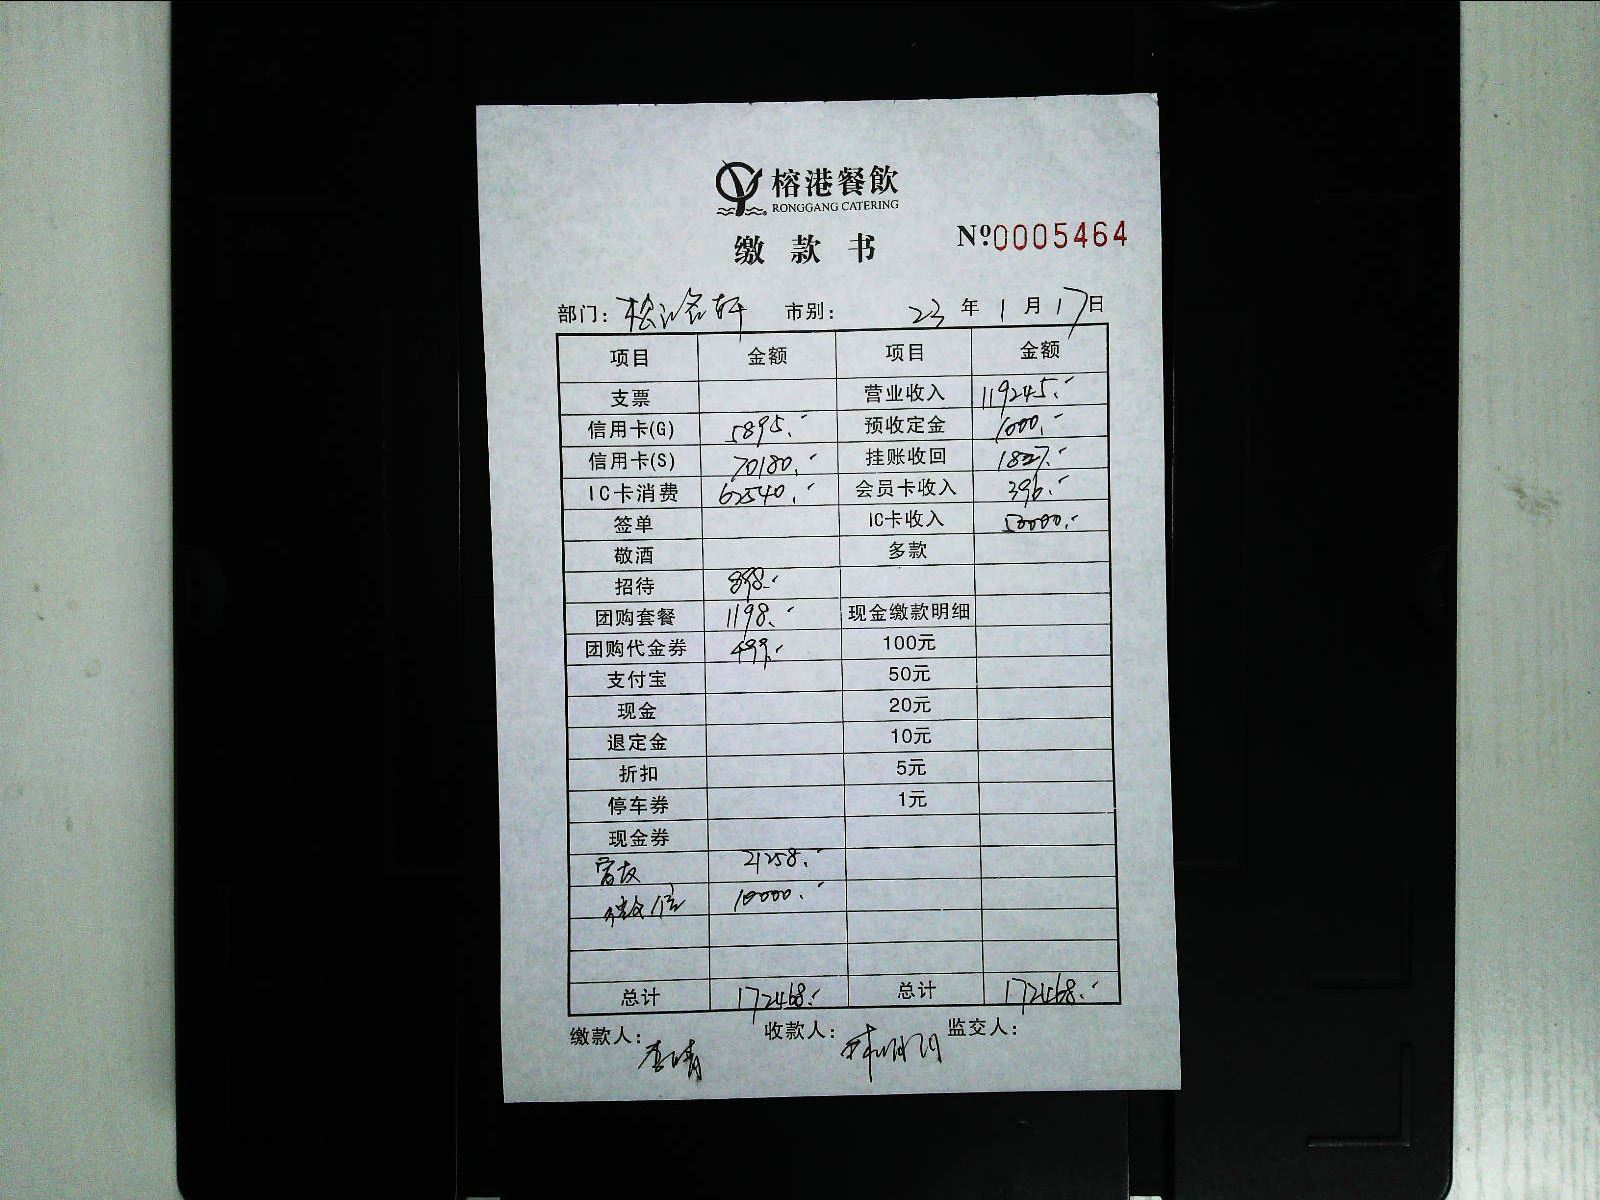 榕港餐飲
RONGGANG CATERING
缴款书 Nº0005464
部门: 市别: 23年1月17日
项目 金额 项目 金额
支票 营业收入 119245.-
信用卡(G) 5895.- 预收定金 1000.-
信用卡(S) 70180.- 挂账收回 1827.-
IC卡消费 62540.- 会员卡收入 396.-
签单 IC卡收入 50000.-
敬酒 多款
招待 898.-
团购套餐 1198.- 现金缴款明细
团购代金券 499.- 100元
支付宝 50元
现金 20元
退定金 10元
折扣 5元
停车券 1元
现金券
富友 21258.-
微信 10000.-
总计 172468.- 总计 172468.-
缴款人: 收款人: 监交人: